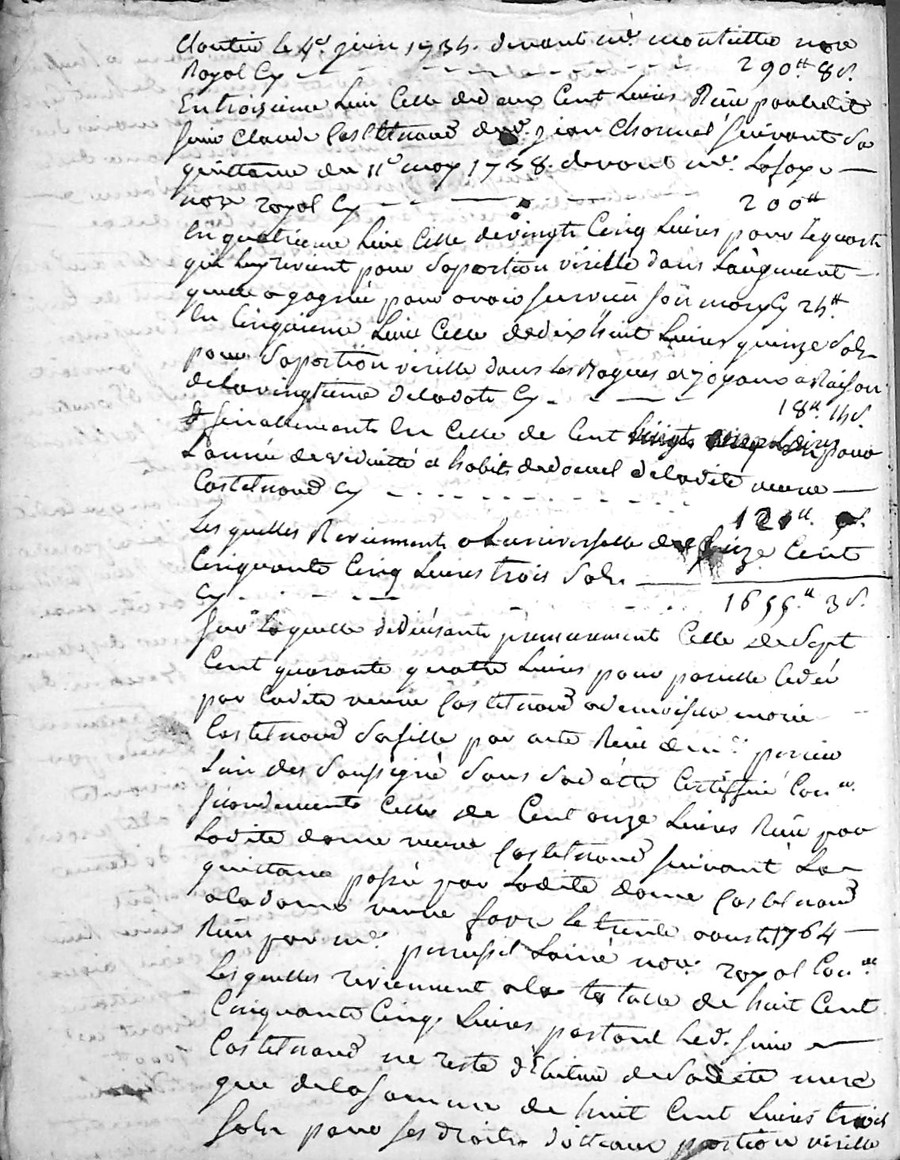 le 4e juin 1734. devant me. nore
Royal Cy 290tt 8s.
En troisieme Lieu Celle de deux Cent Livres Reçu par ledit
Sieur Claude Castelnaud du sr. jean suivant Sa
quittance du 11e may 1738. devant me. Lafoye
nore royal Cy 200tt
En quatrieme Lieu Celle de vingts Cinq Livres pour le quart
que luy revient pour Sa portion virille dans Laugment
quelle a gagnée pour avoir survecu Son mary Cy 25tt
En Cinquieme Lieu Celle de dix huit Livres quinze Sols
pour Sa portion virille dans les Bagues et joyaux a Raison
de la vingtieme de la dote Cy 18tt. 15s.
& finallement En Celle de Cent pour
Lannée de viduitté et habits de deuil de ladite veuve
Castelnaud Cy 121tt.
Les quelles Reviennent a Luniverselle de Seize Cent
Cinquante Cinq Livres trois Sols
Cy 1655.tt 3s.
Sur Laquelle deduisant premierement Celle de Sept
Cent quarante quatre Livres pour pareille Cedée
par Ladite veuve Castelnaud a demoiselle marie
Castelnaud Sa fille par acte Reçu de me.
Lun des Soussigné Sans Certiffié Con.on
Secondement Celle de Cent onze Livres Reçu par
Ladite dame veuve Castelnaud suivant La
quittance passé par Ladite dame Castelnaud
a la dame veuve le trente aoust 1764
Reçu par me. Lainé nore. royal Con.on
Les quelles reviennent a la totalle de huit Cent
Cinquante Cinq Livres partant led. Sieur
Castelnaud ne reste debiteur de Sadite mere
que de la Somme de huit Cent Livres trois
Sols pour ses droits dotteaux portion virille